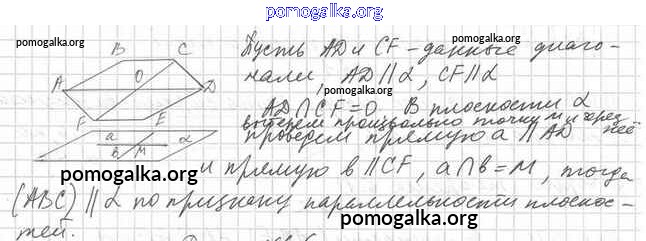 pomogalka.org
pomogalka.org
pomogalka.org
B C
A O D
F E
a α
в M
Пусть AD и CF - данные диаго-
нали, AD || α, CF || α
pomogalka.org
AD ∩ CF = O. В плоскости α
выберем произвольно точку M и через
проведем прямую a || AD неё
pomogalka.org
и прямую в || CF, a ∩ в = M, тогда
(ABC) || α по признаку параллельности плоскос-
тей.
pomogalka.org